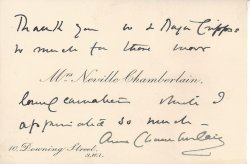 Thank you so
so much for those most
Mrs Neville Chamberlain.
lovely carnations which I
appreciated so much –
Anne Chamberlain
10, Downing Street,
S.W.1.